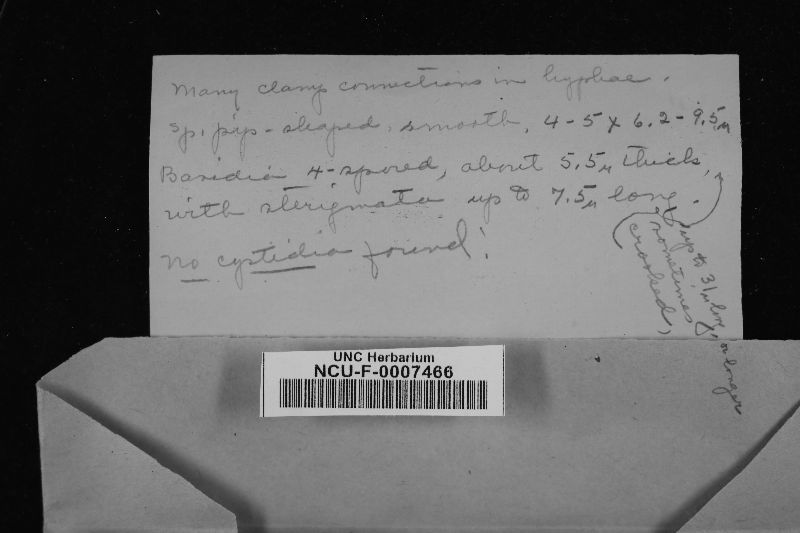 Many clamp connections in hyphae.
sp. pip-shaped, smooth, 4-5 x 6.2-9.5µ
Basidia 4-spored, about 5.5µ thick,
with sterigmata up to 7.5µ long.
& up to 31µ long, or longer
sometimes
(crooked,
No cystidia found!
UNC Herbarium
NCU-F-0007466